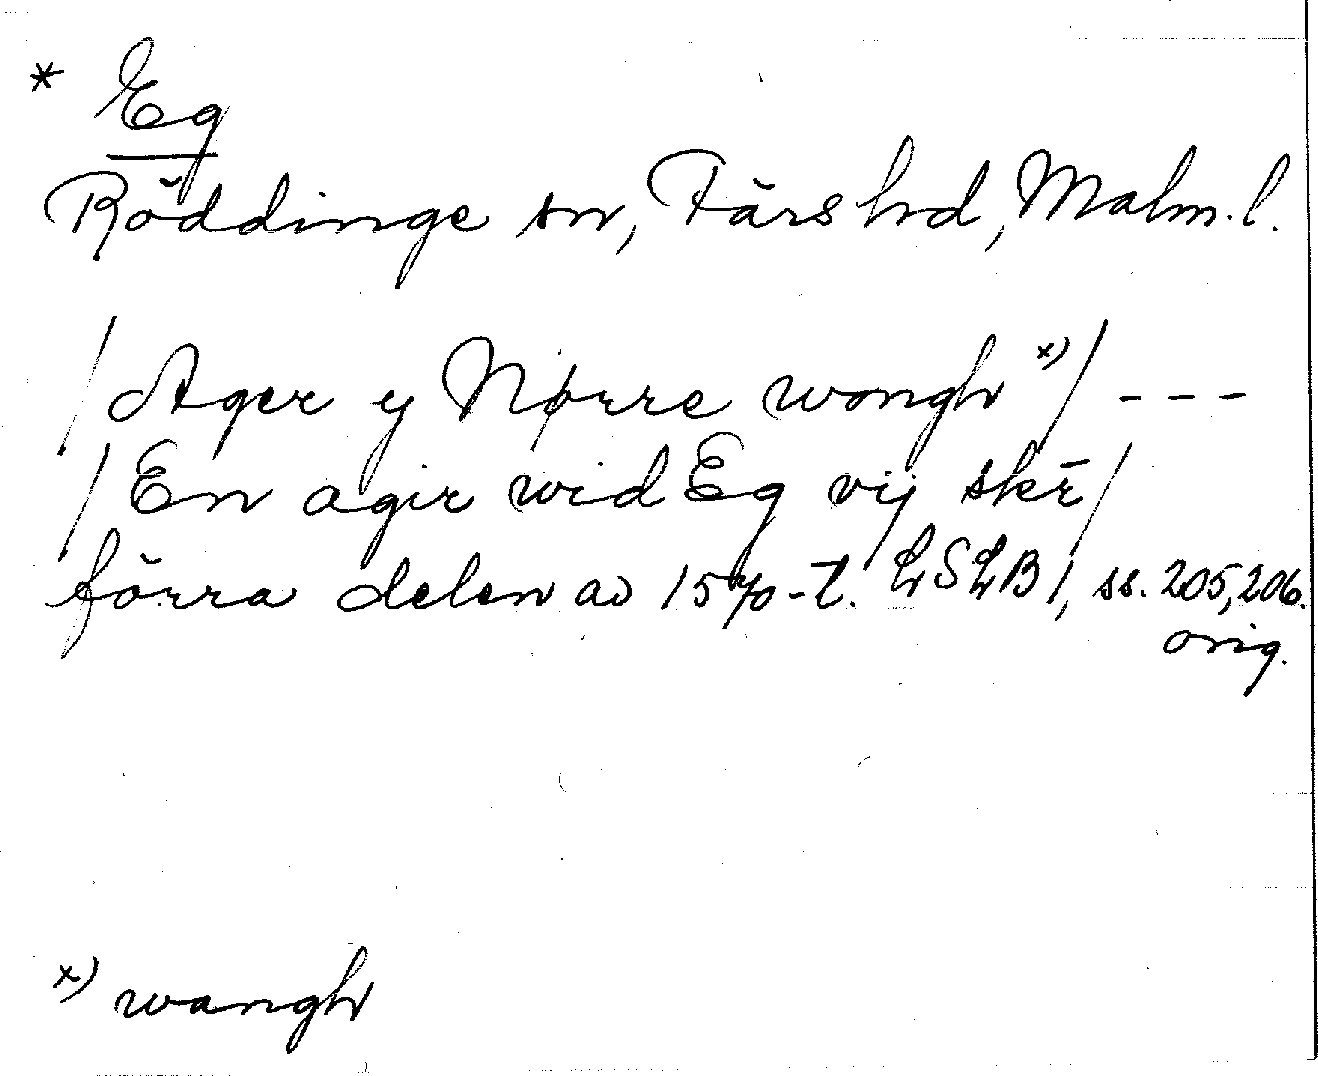 * Eg
Röddinge sn, Färs hd, Malm. l.
/Ager y Nørre wongh x)/ - - -
/En agir wid Eg vij skē/
förra delen av 1570-t. LSLB 1, ss. 205, 206.
orig.
x) wangh